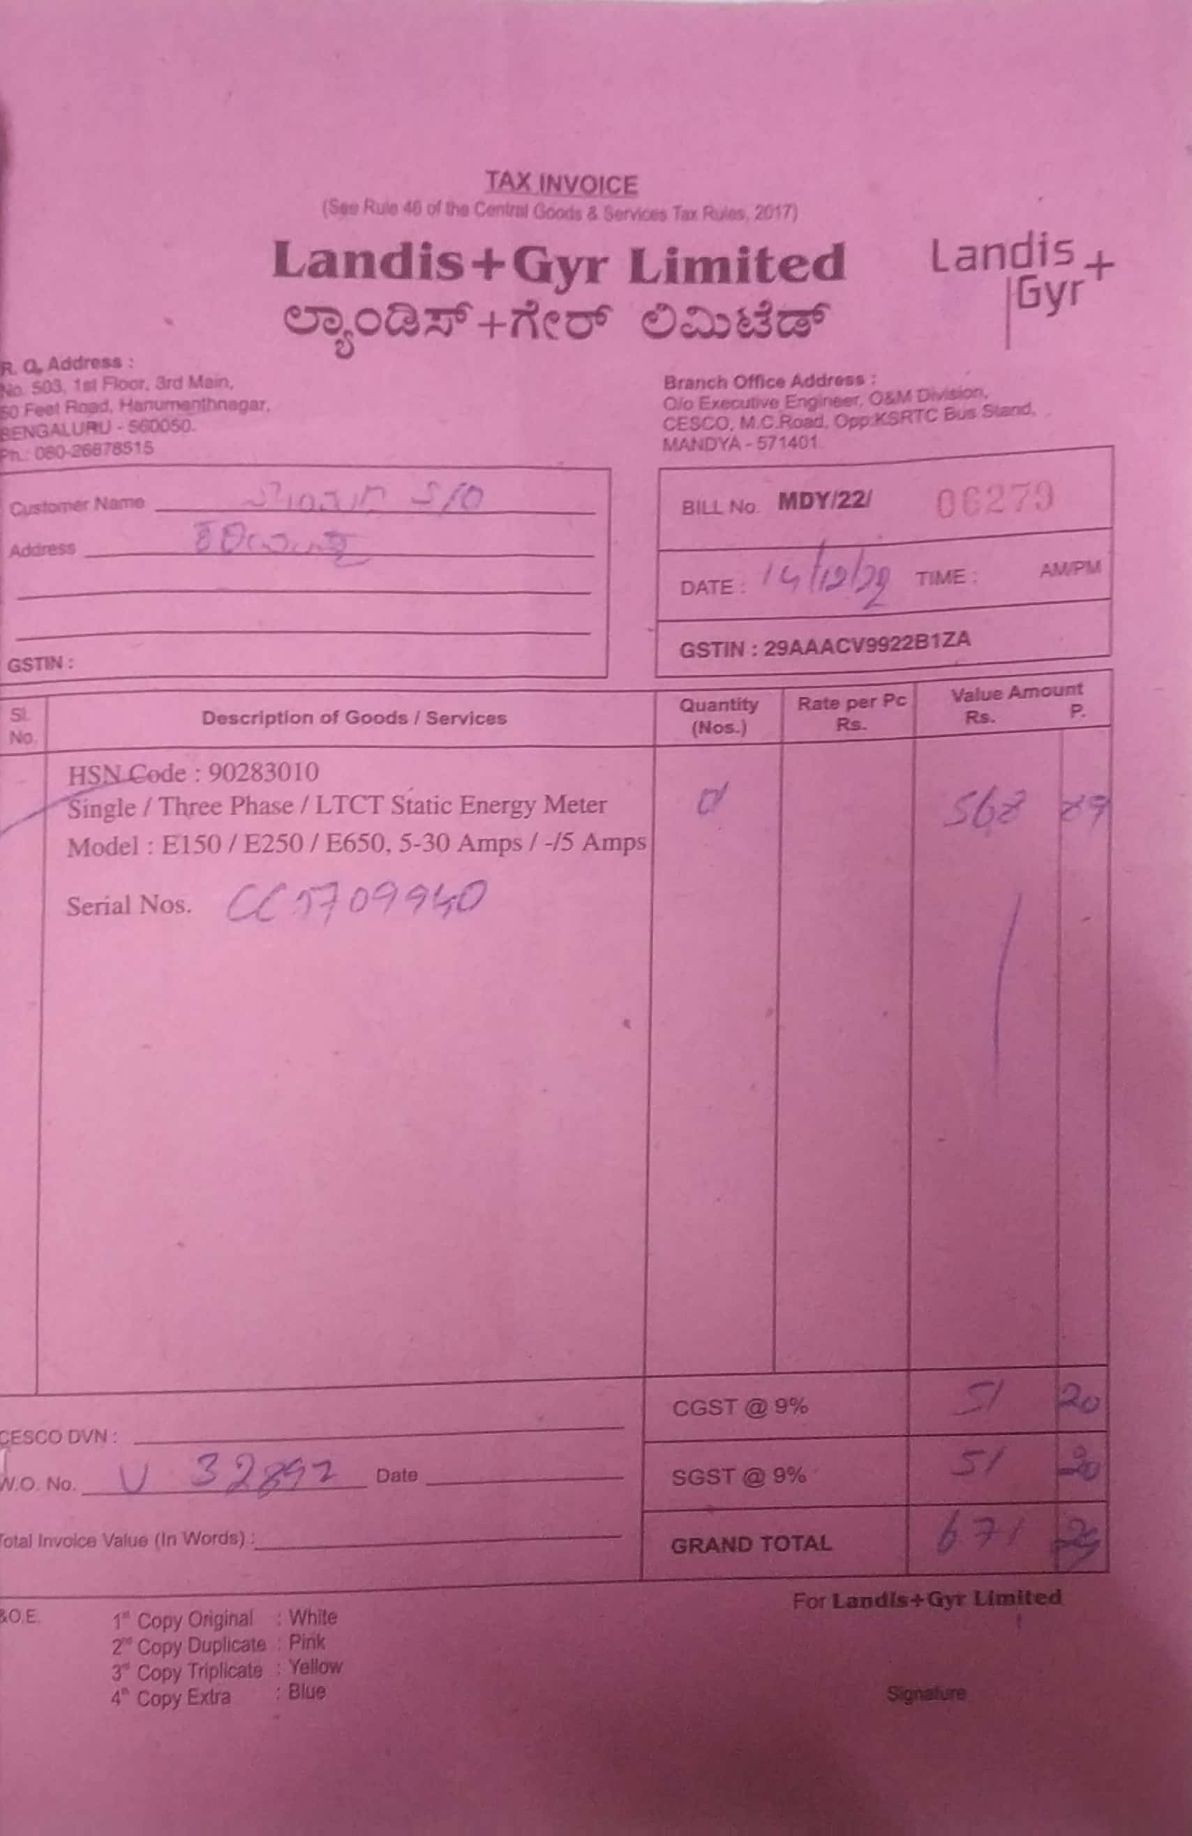 TAX INVOICE
(See Rule 46 of the Central Goods & Services Tax Rules, 2017)
Landis+Gyr Limited
ಲ್ಯಾಂಡಿಸ್+ಗೇರ್ ಲಿಮಿಟೆಡ್
Landis+
Gyr
R. O. Address :
No. 503, 1st Floor, 3rd Main,
60 Feet Road, Hanumanthnagar,
BENGALURU - 560050.
Ph.: 080-26678515
Branch Office Address :
O/o Executive Engineer, O&M Division,
CESCO, M.C.Road, Opp:KSRTC Bus Stand,
MANDYA - 571401.
Customer Name S/O
Address
GSTIN :
BILL No. MDY/22/ 06279
DATE : 14/12/22 TIME : AM/PM
GSTIN : 29AAACV9922B1ZA
Sl. No. Description of Goods / Services Quantity (Nos.) Rate per Pc Rs. Value Amount Rs. P.
HSN Code : 90283010
Single / Three Phase / LTCT Static Energy Meter 568 89
Model : E150 / E250 / E650, 5-30 Amps / -/5 Amps
Serial Nos. CC5709940
CGST @ 9% 51 20
SGST @ 9% 51 20
GRAND TOTAL 671 29
CESCO DVN :
W.O. No. U 32892 Date
Total Invoice Value (In Words) :
&O.E.
1st Copy Original : White
2nd Copy Duplicate : Pink
3rd Copy Triplicate : Yellow
4th Copy Extra : Blue
For Landis+Gyr Limited
Signature